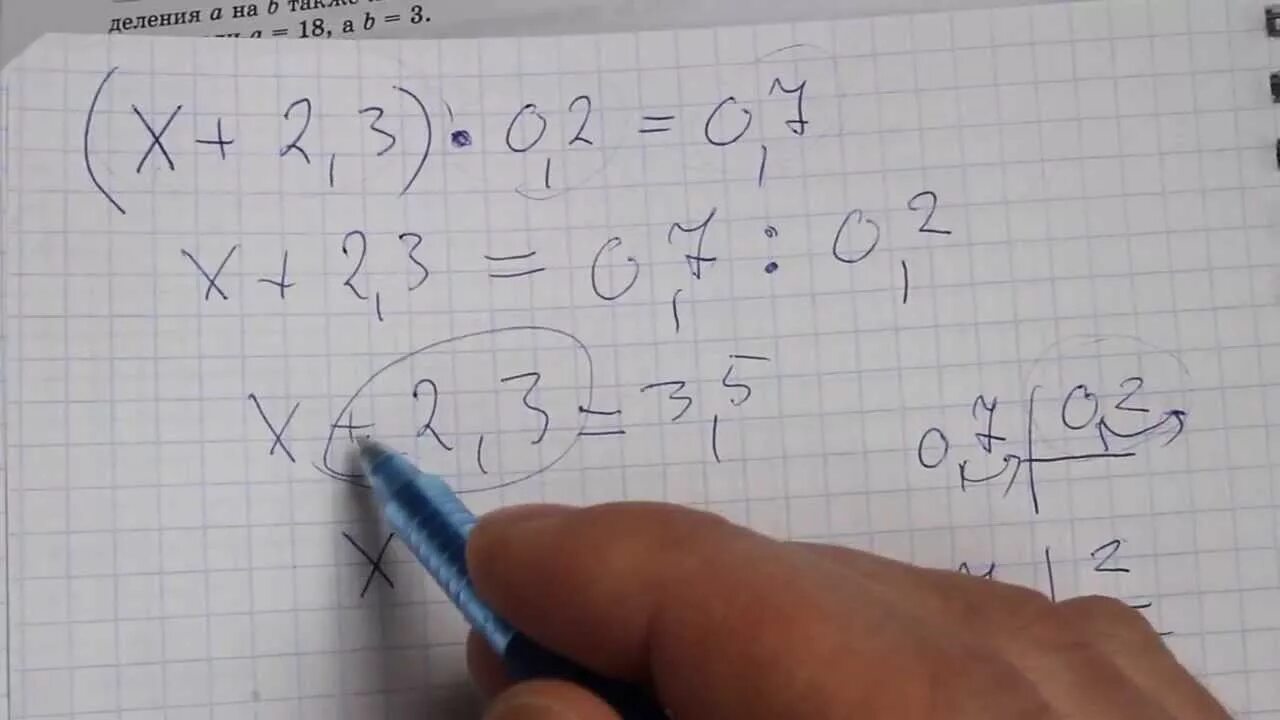 деления a на b также
a = 18, а b = 3.
(x + 2,3) · 0,2 = 0,7
x + 2,3 = 0,7 : 0,2
x + 2,3 = 3,5
0,7 | 0,2
x
2